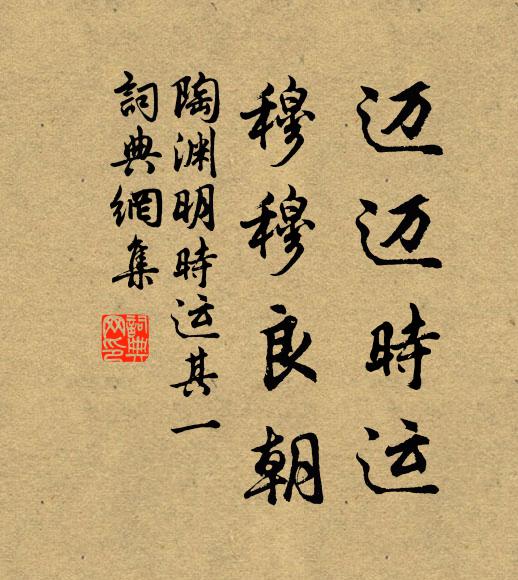 迈迈時运
穆穆良朝
陶渊明時运其一
詞典網集
詞典网印